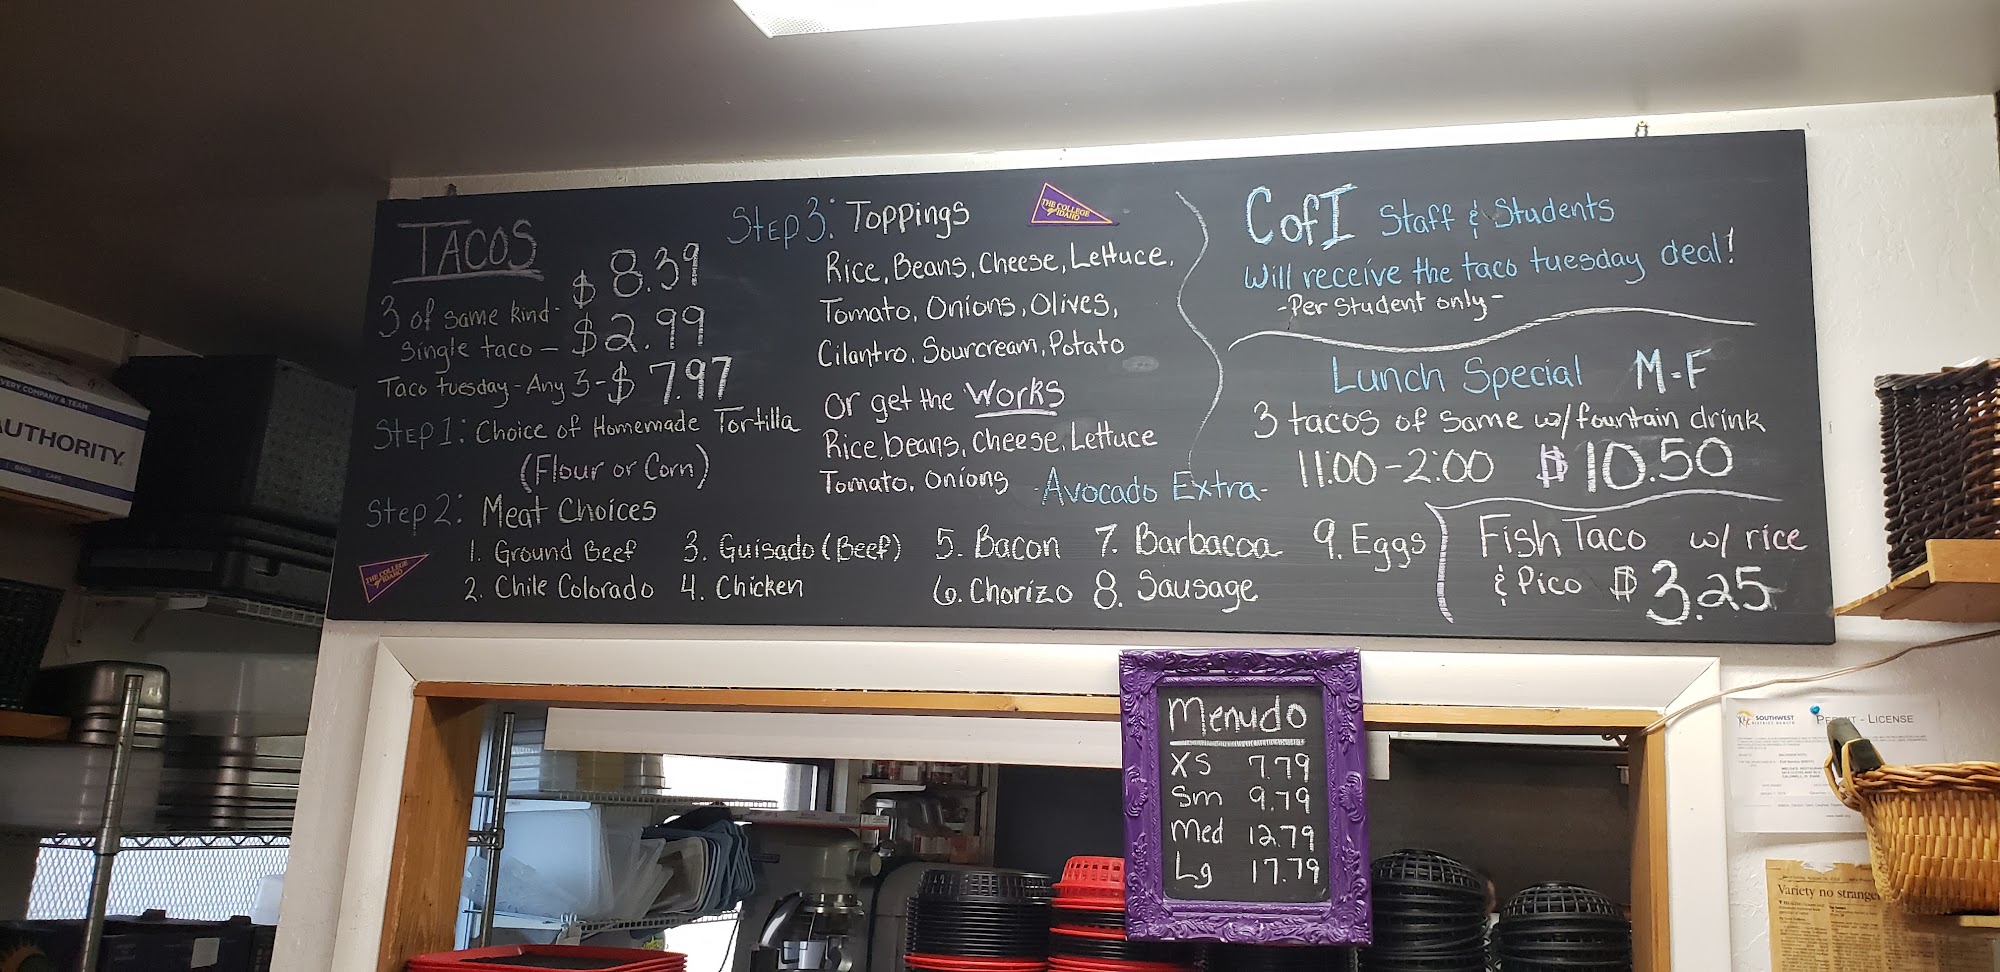 TACOS
3 of same kind - $ 8.39
Single taco - $2.99
Taco tuesday - Any 3 - $ 7.97
Step 1: Choice of Homemade Tortilla
(Flour or Corn)
Step 2: Meat Choices
1. Ground Beef
2. Chile Colorado
3. Guisado (Beef)
4. Chicken
5. Bacon
6. Chorizo
7. Barbacoa
8. Sausage
9. Eggs
THE COLLEGE
of IDAHO
Step 3: Toppings
Rice, Beans, Cheese, Lettuce,
Tomato, Onions, Olives,
Cilantro, Sourcream, Potato
or get the Works
Rice, beans, Cheese, Lettuce
Tomato, Onions
-Avocado Extra-
THE COLLEGE
of IDAHO
CofI Staff & Students
Will receive the taco tuesday deal!
-Per Student only-
Lunch Special M-F
3 tacos of same w/fountain drink
11:00-2:00 $10.50
Fish Taco w/ rice
& Pico $3.25
Menudo
XS 7.79
Sm 9.79
Med 12.79
Lg 17.79
VERY COMPANY & TEAM
AUTHORITY
SOUTHWEST
DISTRICT HEALTH
- LICENSE
Variety no strange